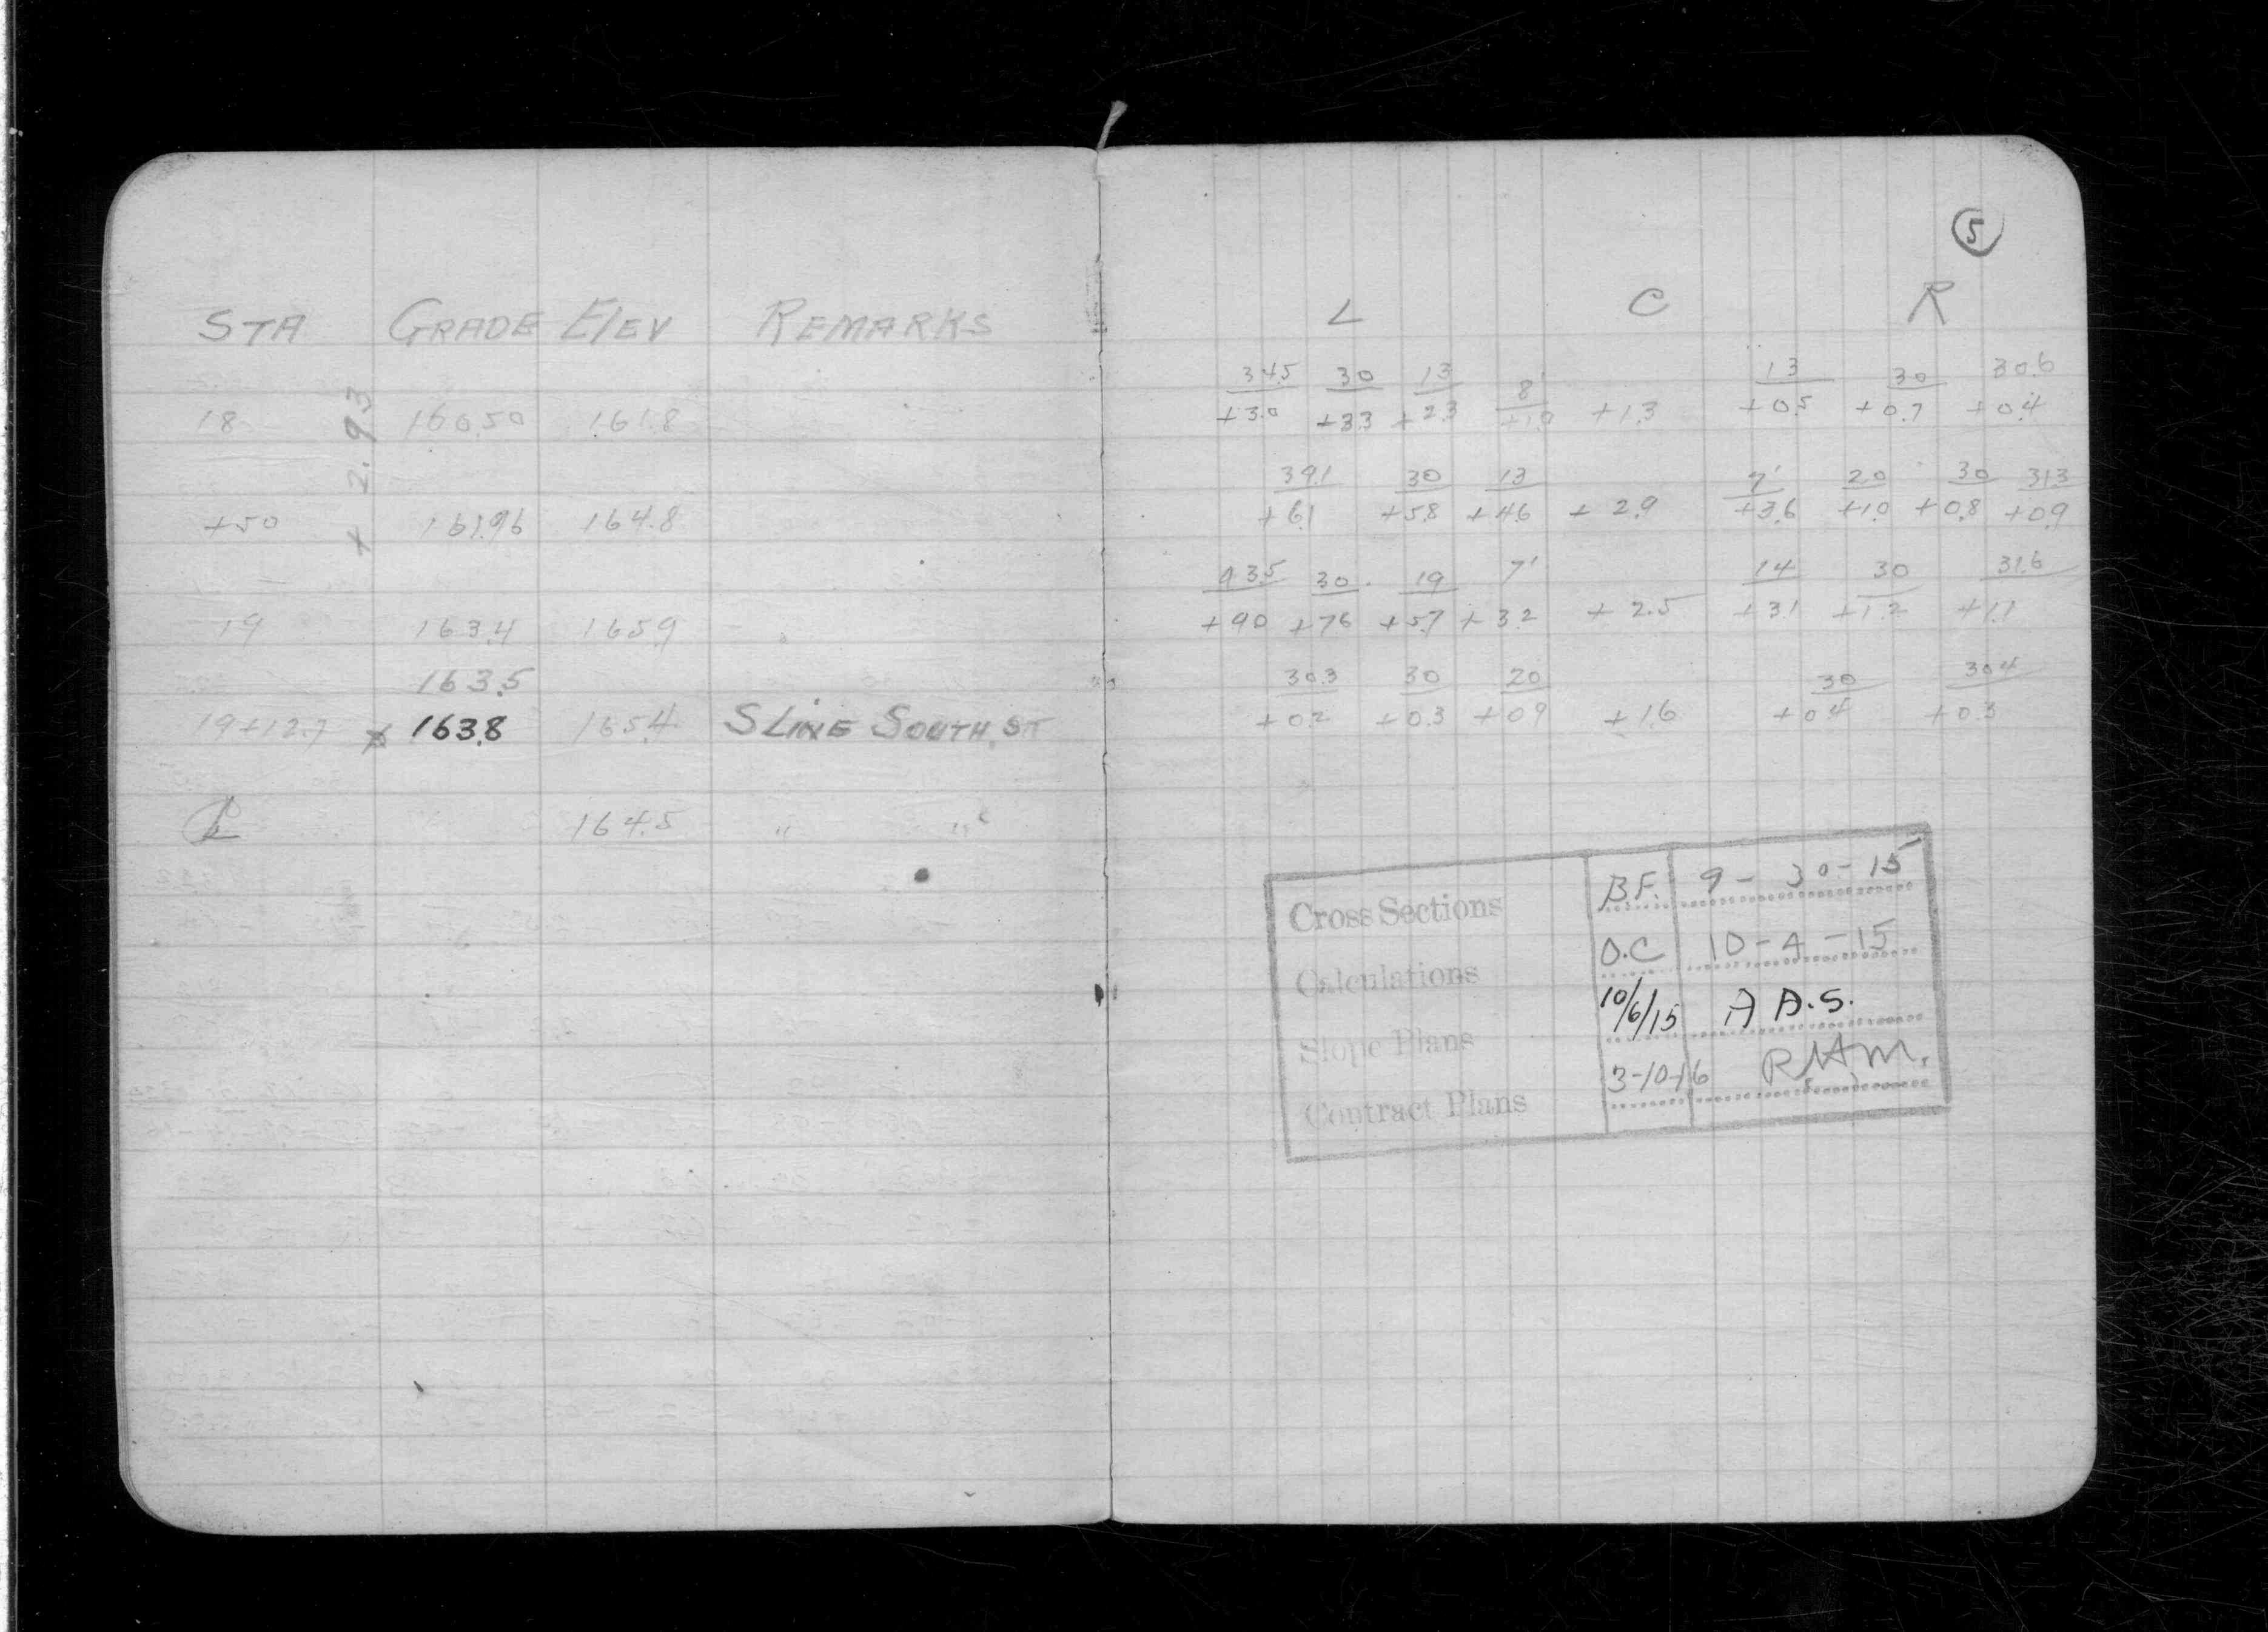 5
STA GRADE ELEV REMARKS L C R
34.5 30 13 8' 13 30 30.6
18 160.50 161.8 +3.0 +3.3 +2.3 +1.3 +0.5 +0.7 +0.4
+ 2.93
39.1 30 13 7' 20 30 31.3
+50 161.96 164.8 +6.1 +5.8 +4.6 +2.9 +3.6 +1.0 +0.8 +0.9
43.5 30 19 7' 14 30 31.6
19 163.4 165.9 +9.0 +7.6 +5.7 +3.2 +2.5 +3.1 +1.2 +1.1
163.5 30.3 30 20 30 30.4
19+12.7 x 163.8 165.4 S LINE SOUTH ST +0.2 +0.3 +0.9 +1.6 +0.4 +0.3
164.5 " "
Cross Sections B.F. 9-30-15
Calculations O.C 10-4-15
Slope Plans 10/6/15 A.D.S.
Contract Plans 3-10-16